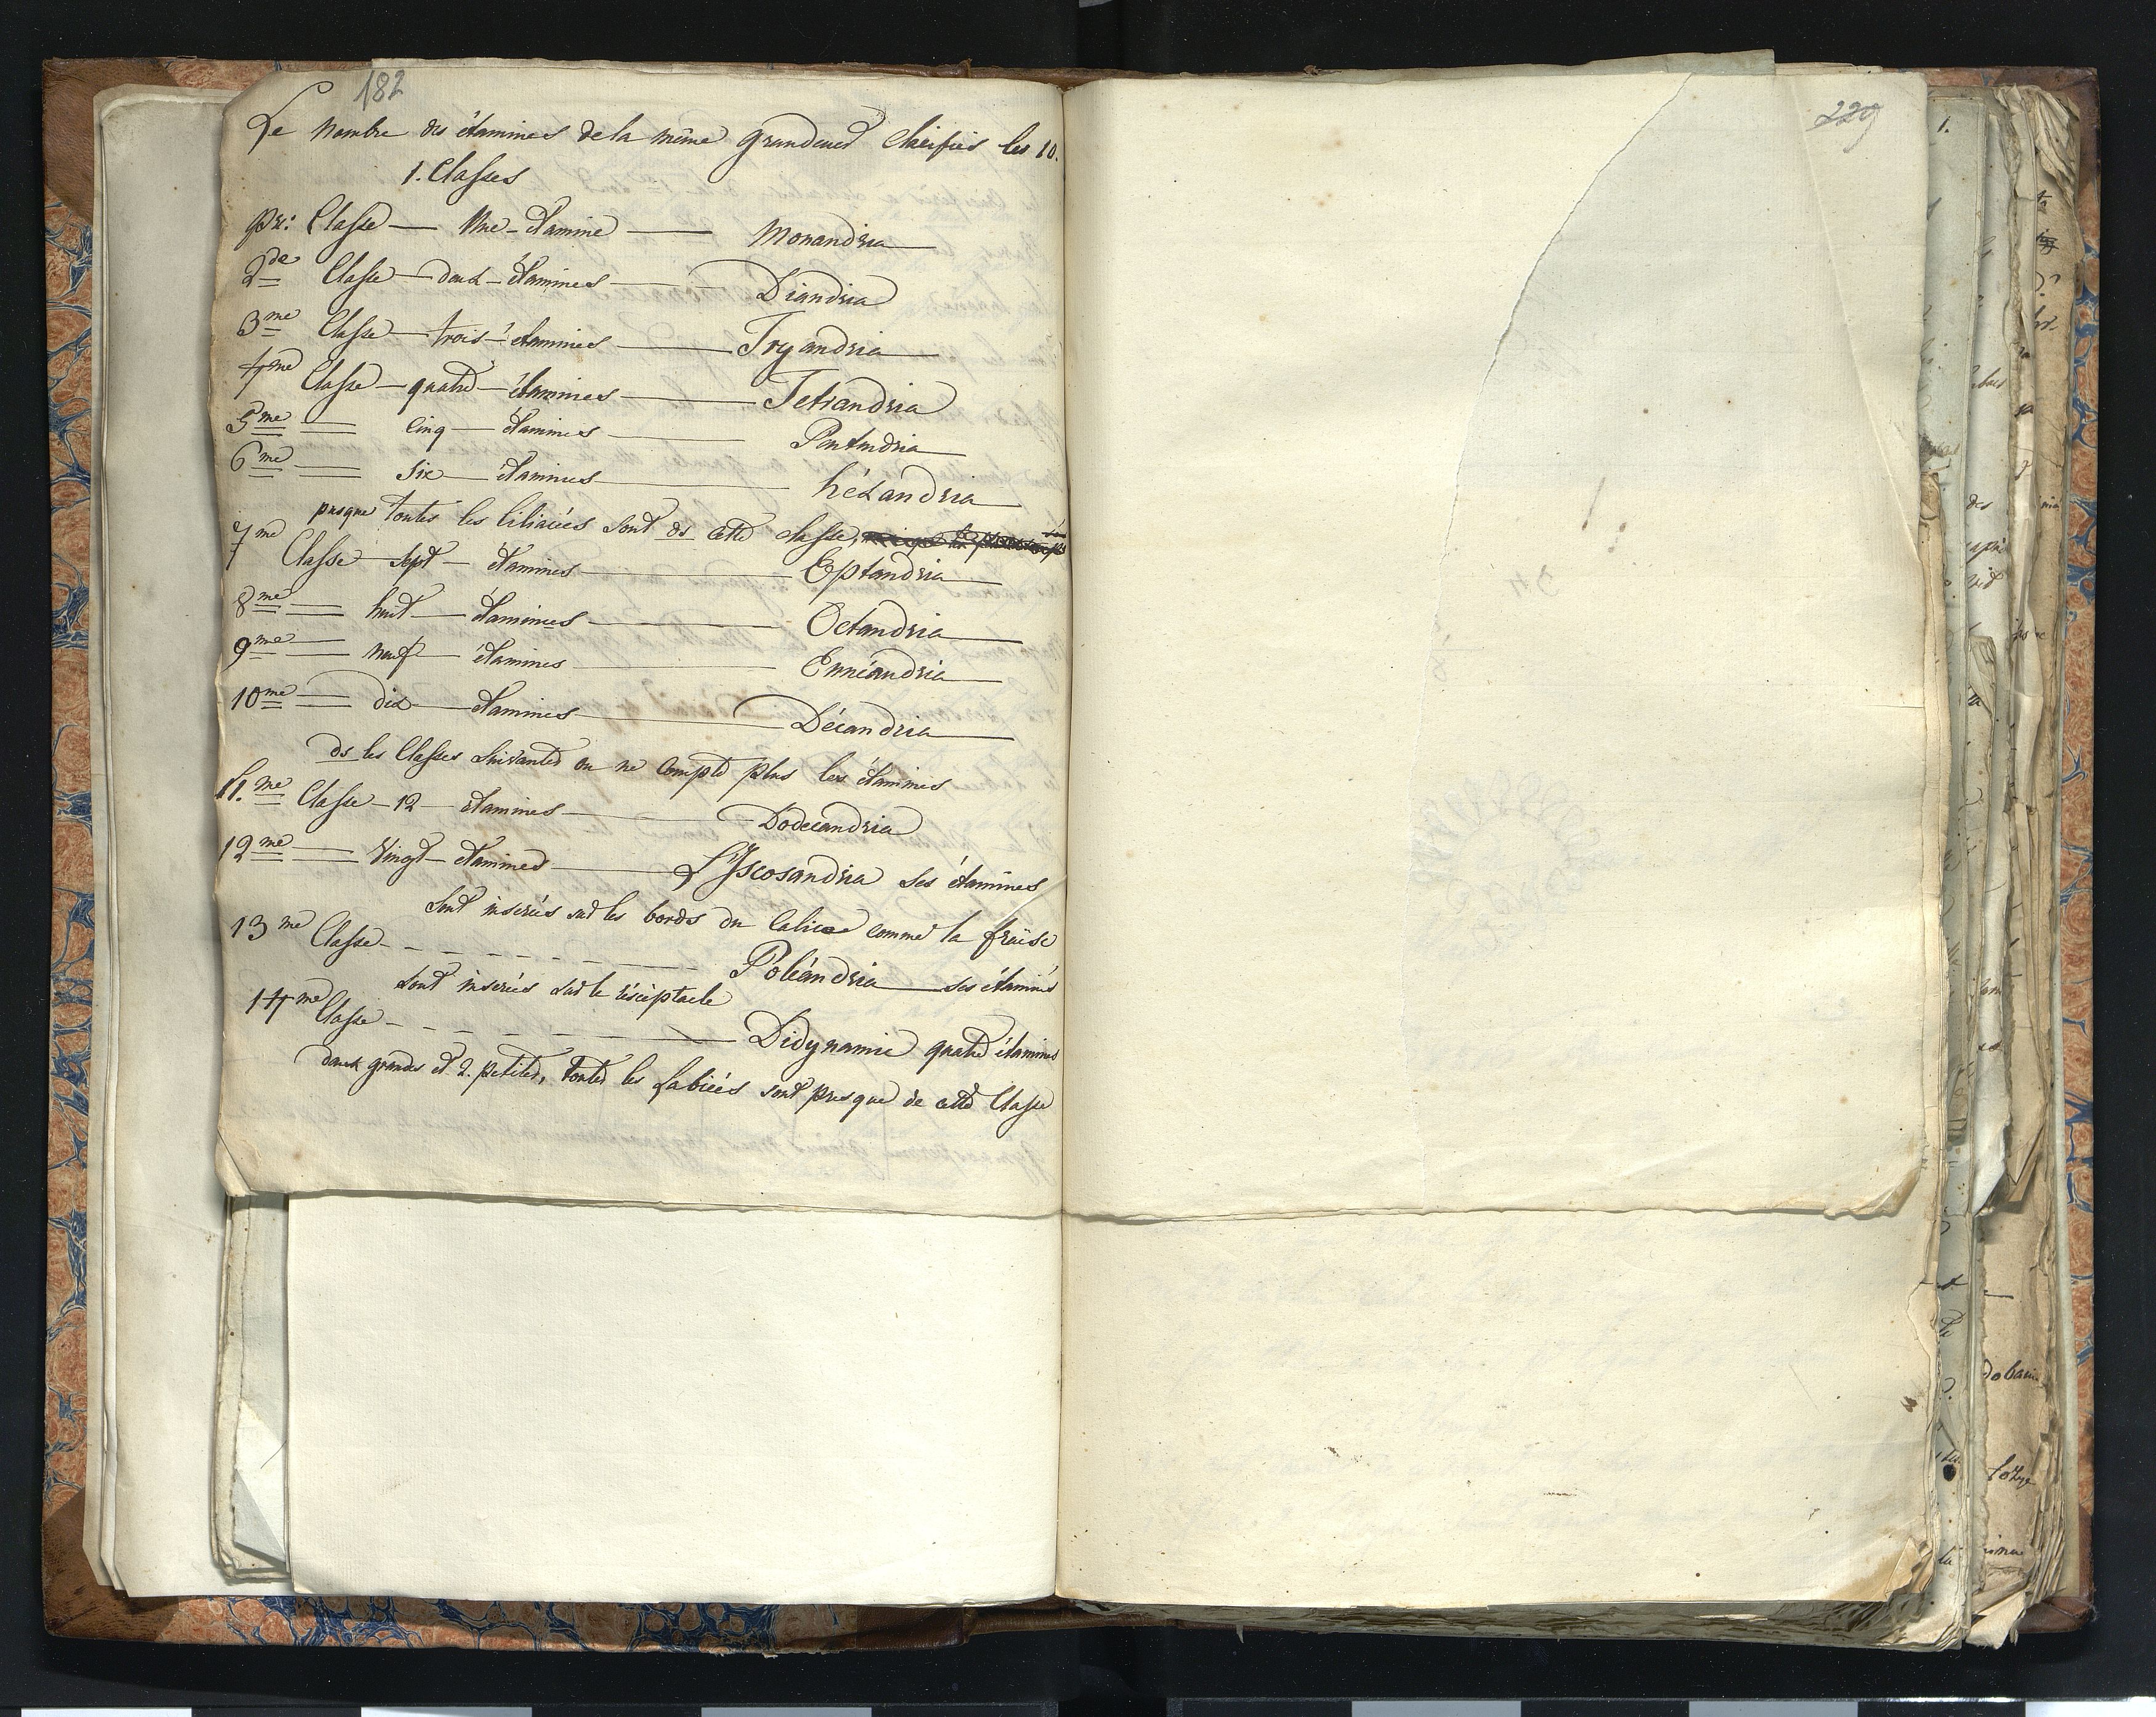 182
Le nombre des étamines de la même grandeur les 10.
1. Classes
pre: Classe — Une - étamine — Monandria
2de Classe — deux - étamines — Diandria
3me Classe — trois - étamines — Tryandria
4me Classe — quatre - étamines — Tetrandria
5me — cinq — étamines — Pentendria
6me — six — étamines — héxandria
presque toutes les liliacées sont ds cette classe,
7me Classe — sept — étamines — Eptandria
8me — huit — étamines — Octandria
9me — neuf — étamines — Ennéandria
10me — dix — étamines — Décandria
ds les Classes suivantes on ne compte plus les étamines
11.me Classe - 12 - étamines — Dodecandria
12me — Vingt - étamines — L'Iscosandria ses étamines
sont inserées sur les bords du Calice comme la fraise
13me Classe - - - - - - Poliéandria — ses étamines
sont inserées sur le réceptacle
14me Classe - - - - - - Didynamie quatre étamines
deux grandes et 2. petites, toutes les Labiées sont presque de cette Classe
229